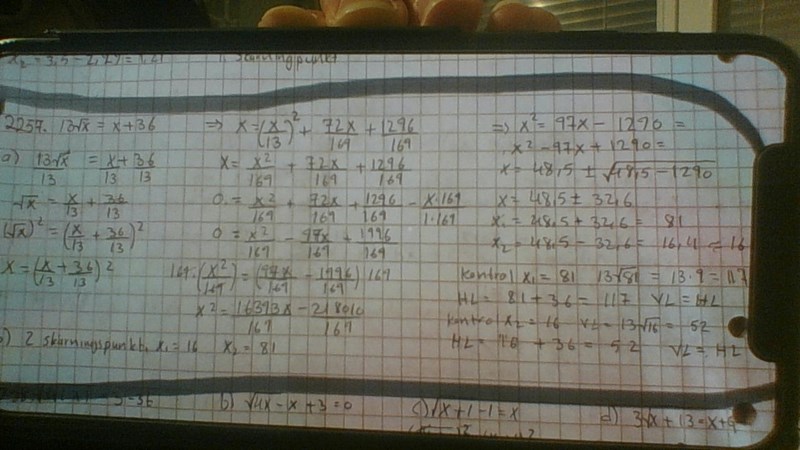 x₂ = 3,5 - 2,29 = 1,21
1 skärningspunkt
2257. 13√x = x + 36
a) 13√x/13 = x/13 + 36/13
√x = x/13 + 36/13
(√x)² = (x/13 + 36/13)²
x = (x/13 + 36/13)²
⇒ x = (x/13)² + 72x/169 + 1296/169
x = x²/169 + 72x/169 + 1296/169
0 = x²/169 + 72x/169 + 1296/169 - x·169/1·169
0 = x²/169 - 97x/169 + 1296/169
169·(x²/169) = (97x/169 - 1296/169) 169
x² = 16393x/169 - 218010/169
⇒ x² = 97x - 1290 =
x² - 97x + 1290 =
x = 48,5 ± √48,5 - 1290
x = 48,5 ± 32,6
x₁ = 48,5 + 32,6 = 81
x₂ = 48,5 - 32,6 = 16,4 = 16
kontrol x₁ = 81 13√81 = 13·9 = 117
HL = 81 + 36 = 117 VL = HL
kontrol x₂ = 16 VL = 13√16 = 52
HL = 16 + 36 = 52 VL = HL
b) 2 skärningspunkt, x₁ = 16 x₂ = 81
b) √4x - x + 3 = 0
c) √x + 1 - 1 = x
d) 3√x + 13 = x + 9